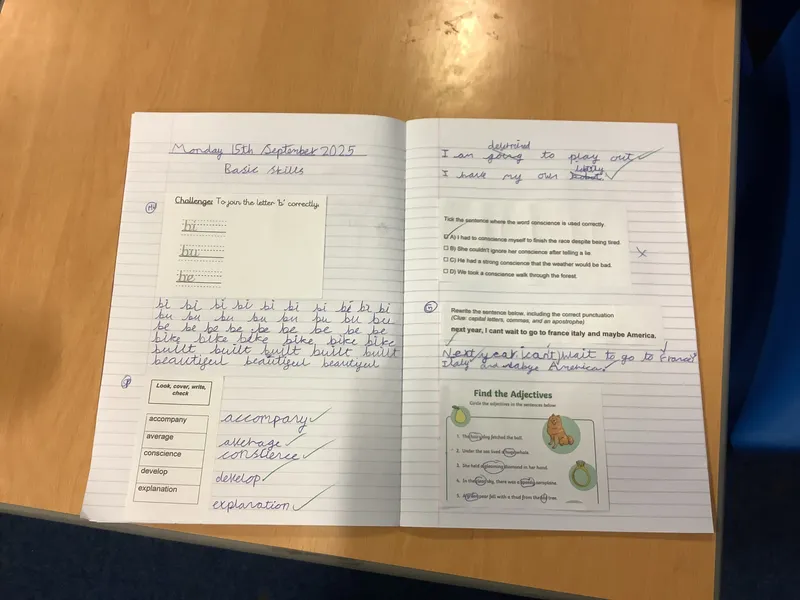 Monday 15th September 2025
Basic Skills
Challenge: To join the letter 'b' correctly.
bi
bu
be
bi bi bi bi bi bi bi bi bi bi
bu bu bu bu bu bu bu bu bu
be be be be be be be be be
bike bike bike bike bike bike
built built built built built
beautiful beautiful beautyful
Look, cover, write,
check
accompany accompany
average average
conscience conscience
develop develop
explanation explanation
I am going to play out
I have my own
Tick the sentence where the word conscience is used correctly.
A) I had to conscience myself to finish the race despite being tired.
B) She couldn't ignore her conscience after telling a lie.
C) He had a strong conscience that the weather would be bad.
D) We took a conscience walk through the forest.
Rewrite the sentence below, including the correct punctuation
(Clue: capital letters, commas, and an apostrophe)
next year, I cant wait to go to france italy and maybe America.
Next year I can't wait to go to France
Italy and America.
Find the Adjectives
Circle the adjectives in the sentences below.
1. The hairy dog fetched the ball.
2. Under the sea lived a
3. She held a glimmering diamond in her hand.
4. In the sky, there was a aeroplane.
5. A pear fell with a thud from the tree.